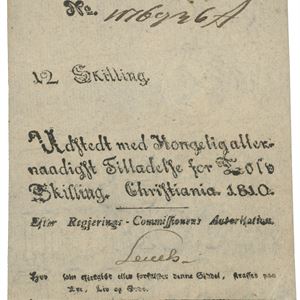 No. 1176936 A
12 Skilling.
Udstedt med Kongelig aller-
naadigst Tilladelse for Tolv
Skilling. Christiania 1810.
Efter Regjerings-Commissionens Autorisation.
Hvo som eftergiør eller forfalsker denne Seddel, straffes paa
Ære, Liv og Gods.